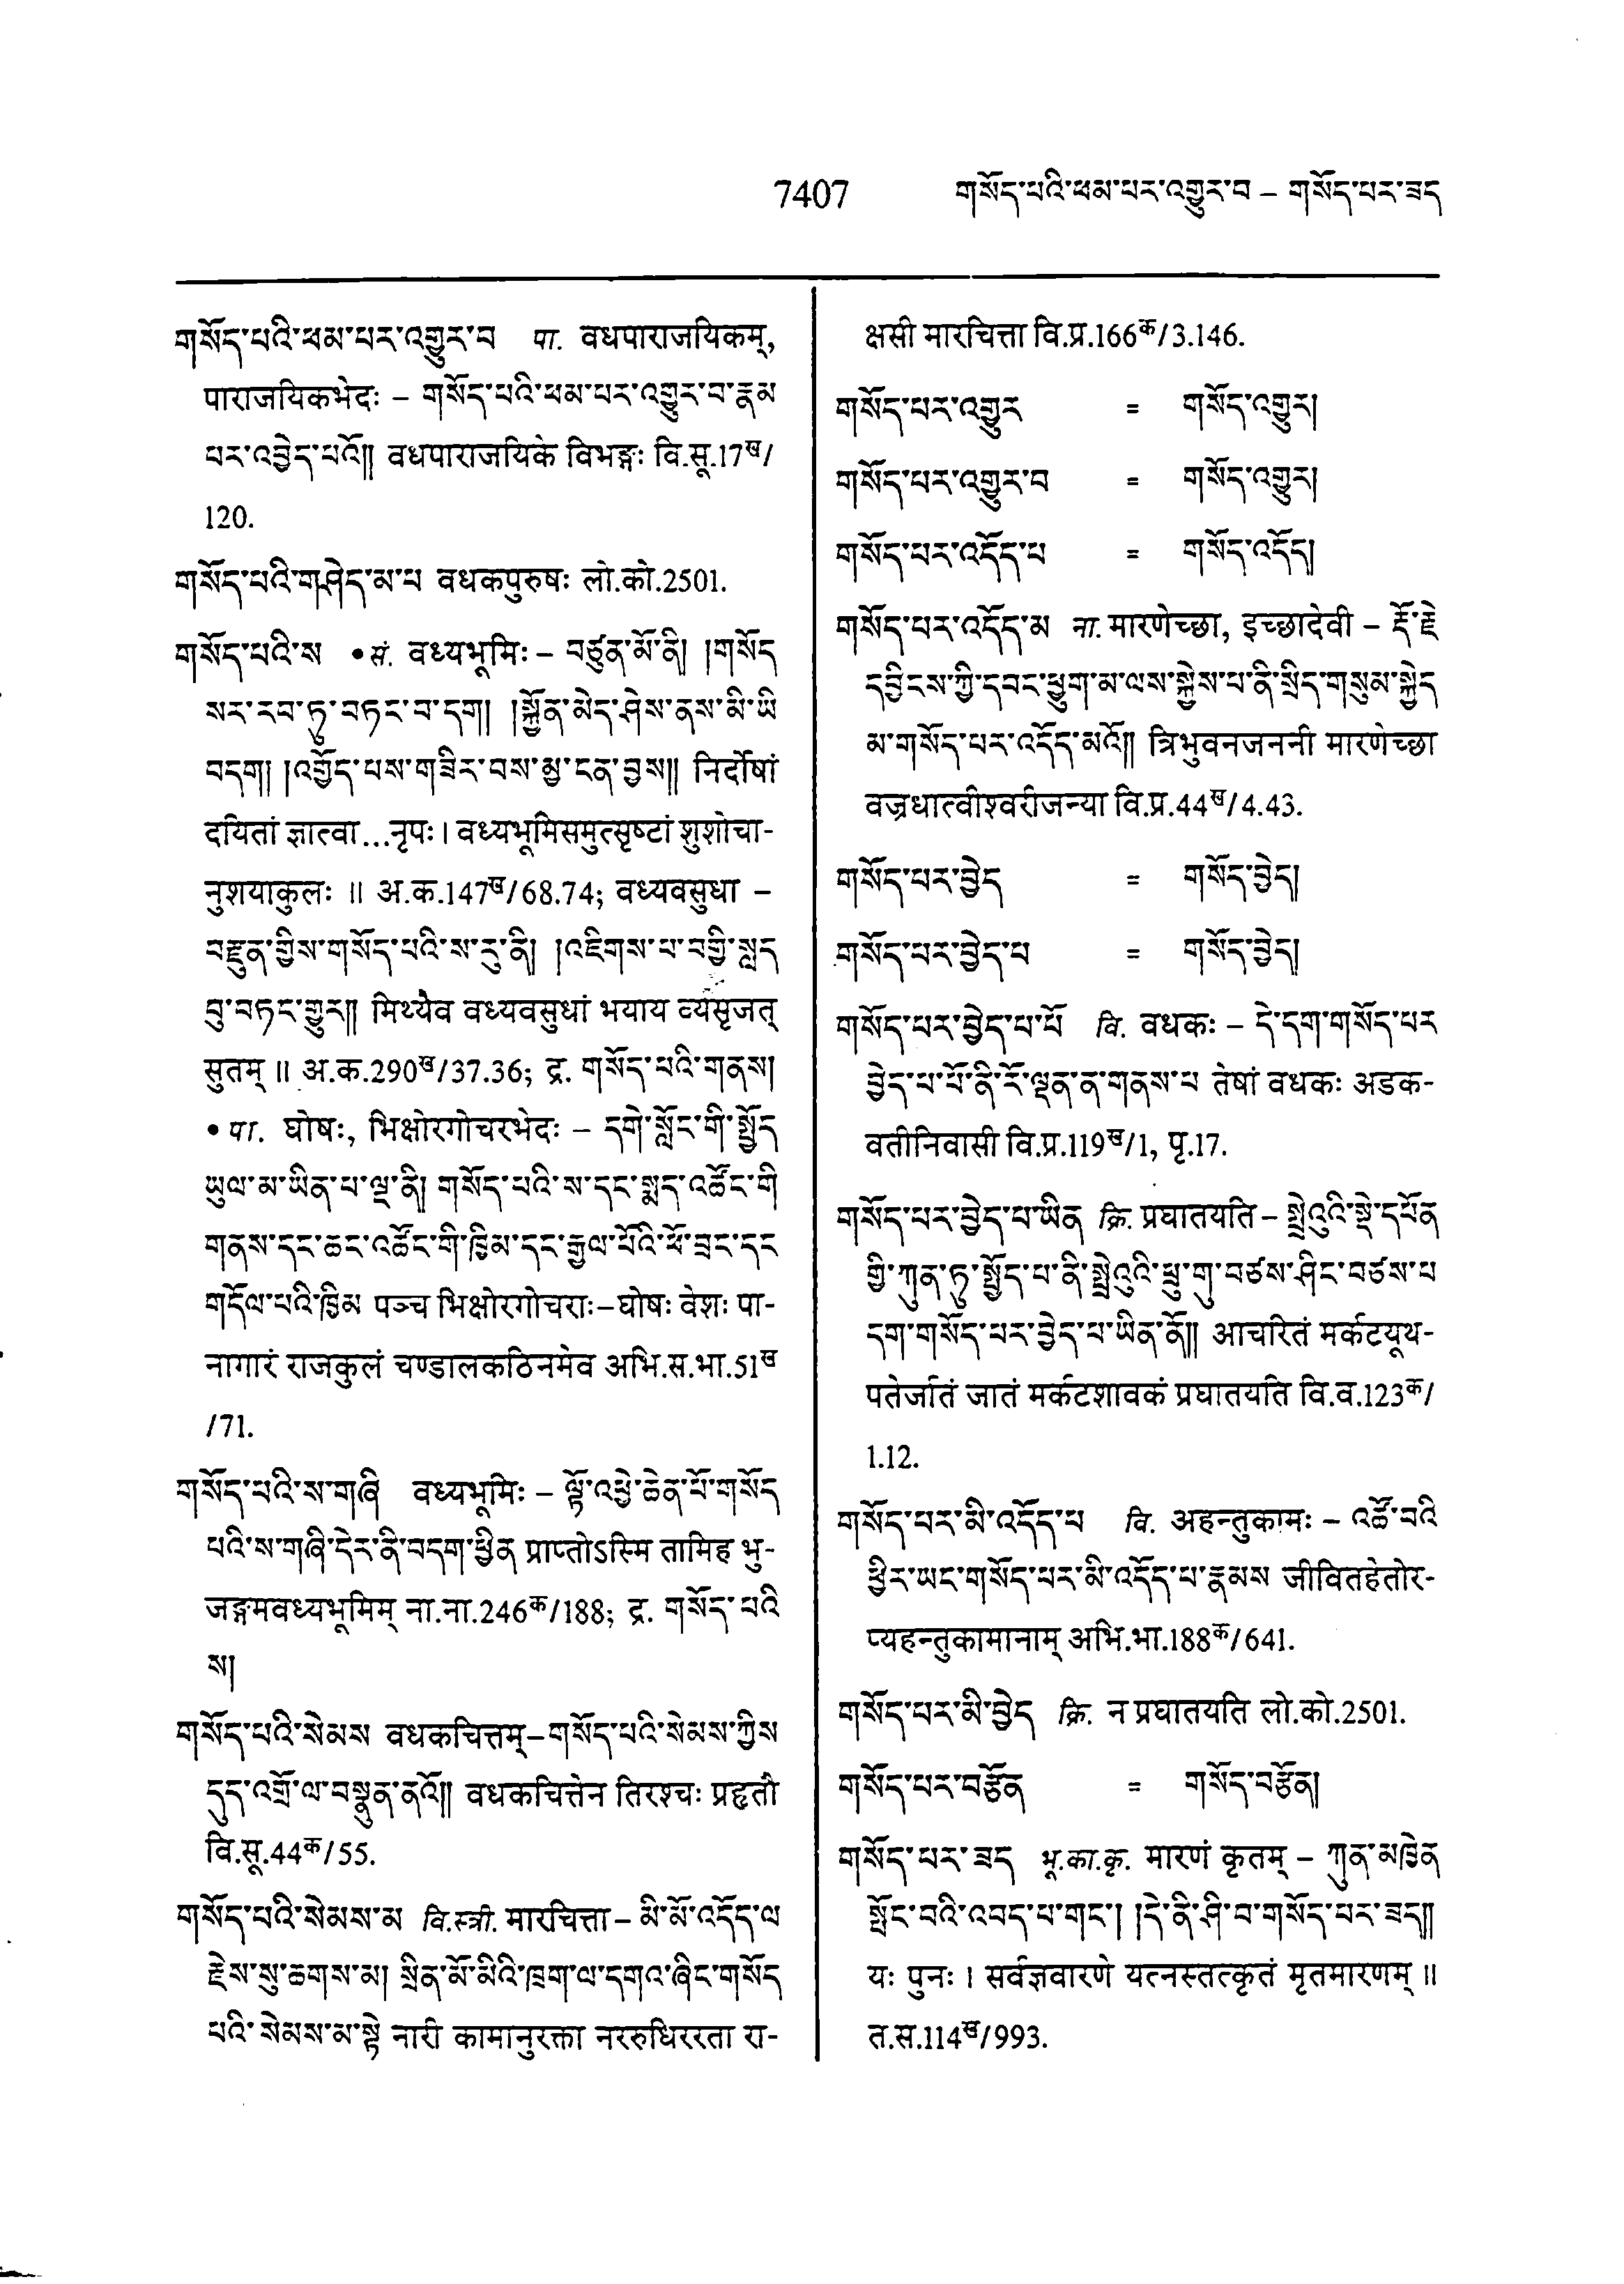 7407 གསོད་པའི་ཕམ་པར་འགྱུར་བ – གསོད་པར་ཟད
གསོད་པའི་ཕམ་པར་འགྱུར་བ पा. वधपाराजयिकम्,
पाराजयिकभेदः – གསོད་པའི་ཕམ་པར་འགྱུར་བ་རྣམ
པར་འབྱེད་པའོ།། वधपाराजयिके विभङ्गः वि.सू.17ख/
120.
གསོད་པའི་གཤེད་མ་པ वधकपुरुषः लो.को.2501.
གསོད་པའི་ས •सं. वध्यभूमिः – བཙུན་མོ་ནི། །གསོད
སར་རབ་ཏུ་བཏང་བ་དག། །སྐྱོན་མེད་ཤེས་ནས་མི་ཡི
བདག། །འགྱོད་པས་གཟིར་བས་མྱ་ངན་བྱས།། निर्दोषां
दयितां ज्ञात्वा...नृपः। वध्यभूमिसमुत्सृष्टां शुशोचा-
नुशयाकुलः ॥ अ.क.147ख/68.74; वध्यवसुधा –
བརྫུན་གྱིས་གསོད་པའི་ས་རུ་ནི། །འཇིགས་པ་བགྱི་སླད
བུ་བཏང་གྱུར།། मिथ्यैव वध्यवसुधां भयाय व्यसृजत्
सुतम् ॥ अ.क.290ख/37.36; द्र. གསོད་པའི་གནས།
• पा. घोषः, भिक्षोरगोचरभेदः – དགེ་སློང་གི་སྤྱོད
ཡུལ་མ་ཡིན་པ་ལྔ་ནི། གསོད་པའི་ས་དང་སྨད་འཚོང་གི
གནས་དང་ཆང་འཚོང་གི་ཁྱིམ་དང་རྒྱལ་པོའི་ཕོ་བྲང་དང
གདོལ་པའི་ཁྱིམ पञ्च भिक्षोरगोचराः–घोषः वेशः पा-
नागारं राजकुलं चण्डालकठिनमेव अभि.स.भा.51ख
/71.
གསོད་པའི་ས་གཞི वध्यभूमिः – ལྟོ་འཕྱེ་ཆེན་པོ་གསོད
པའི་ས་གཞི་དེར་ནི་བདག་ཕྱིན प्राप्तोऽस्मि तामिह भु-
जङ्गमवध्यभूमिम् ना.ना.246क/188; द्र. གསོད་པའི
ས།
གསོད་པའི་སེམས वधकचित्तम्–གསོད་པའི་སེམས་ཀྱིས
དུད་འགྲོ་ལ་བསྣུན་ནའོ།། वधकचित्तेन तिरश्चः प्रहृतौ
वि.सू.44क/55.
གསོད་པའི་སེམས་མ वि.स्त्री. मारचित्ता – མི་མོ་འདོད་ལ
རྗེས་སུ་ཆགས་མ། སྲིན་མོ་མིའི་ཁྲག་ལ་དགའ་ཞིང་གསོད
པའི་སེམས་མ་སྟེ नारी कामानुरक्ता नररुधिररता रा-
क्षसी मारचित्ता वि.प्र.166क/3.146.
གསོད་པར་འགྱུར = གསོད་འགྱུར།
གསོད་པར་འགྱུར་བ = གསོད་འགྱུར།
གསོད་པར་འདོད་པ = གསོད་འདོད།
གསོད་པར་འདོད་མ ना. मारणेच्छा, इच्छादेवी – རྡོ་རྗེ
དབྱིངས་ཀྱི་དབང་ཕྱུག་མ་ལས་སྐྱེས་པ་ནི་སྲིད་གསུམ་སྐྱེད
མ་གསོད་པར་འདོད་མའོ།། त्रिभुवनजननी मारणेच्छा
वज्रधात्वीश्वरीजन्या वि.प्र.44ख/4.43.
གསོད་པར་བྱེད = གསོད་བྱེད།
གསོད་པར་བྱེད་པ = གསོད་བྱེད།
གསོད་པར་བྱེད་པ་པོ वि. वधकः – དེ་དག་གསོད་པར
བྱེད་པ་པོ་ནི་རོ་ལྡན་ན་གནས་པ तेषां वधकः अडक-
वतीनिवासी वि.प्र.119ख/1, पृ.17.
གསོད་པར་བྱེད་པ་ཡིན क्रि. प्रघातयति – སྤྲེའུའི་སྡེ་དཔོན
གྱི་ཀུན་ཏུ་སྤྱོད་པ་ནི་སྤྲེའུའི་ཕྲུ་གུ་བཙས་ཤིང་བཙས་པ
དག་གསོད་པར་བྱེད་པ་ཡིན་ནོ།། आचरितं मर्कटयूथ-
पतेर्जातं जातं मर्कटशावकं प्रघातयति वि.व.123क/
1.12.
གསོད་པར་མི་འདོད་པ वि. अहन्तुकामः – འཚོ་བའི
ཕྱིར་ཡང་གསོད་པར་མི་འདོད་པ་རྣམས जीवितहेतोर-
प्यहन्तुकामानाम् अभि.भा.188क/641.
གསོད་པར་མི་བྱེད क्रि. न प्रघातयति लो.को.2501.
གསོད་པར་བརྩོན = གསོད་བརྩོན།
གསོད་པར་ཟད भू.का.कृ. मारणं कृतम् – ཀུན་མཁྱེན
སྤོང་བའི་འབད་པ་གང་། །དེ་ནི་ཤི་བ་གསོད་པར་ཟད།།
यः पुनः । सर्वज्ञवारणे यत्नस्तत्कृतं मृतमारणम् ॥
त.स.114ख/993.